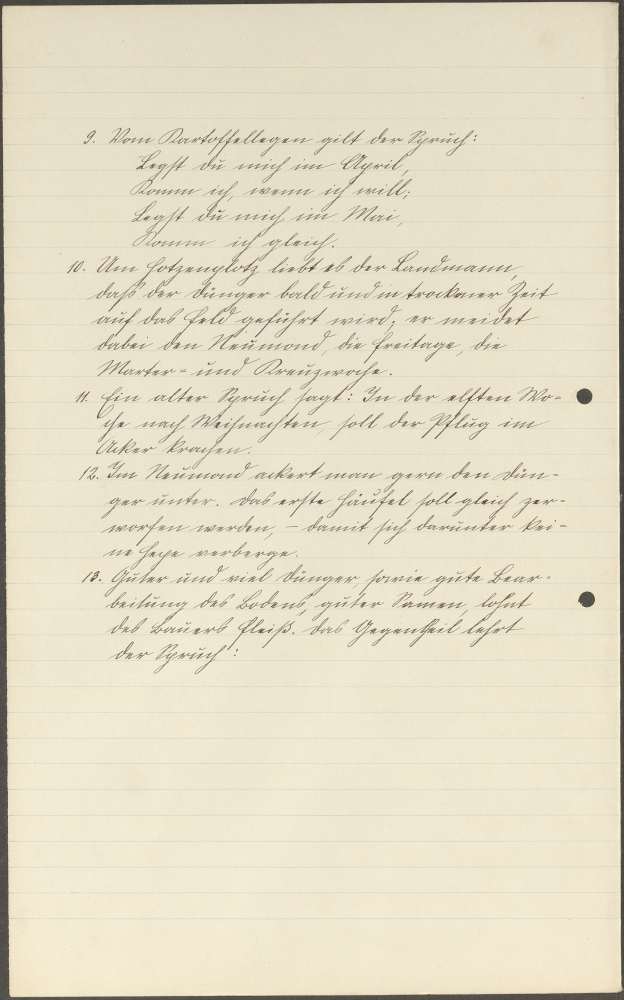 9. Vom Kartoffellegen gilt der Spruch:
Legst du mich im April,
Komm ich, wenn ich will;
Legst du mich im Mai,
Komm ich gleich.
10. Um Hotzenplotz liebt es der Landmann,
daß der Dünger bald und in trockener Zeit
auf das Feld geführt wird; er meidet
dabei den Neumond, die Freitage, die
Marter- und Kreuzwoche.
11. Ein alter Spruch sagt: In der elften Wo-
che nach Weihnachten, soll der Pflug im
Acker krachen.
12. Im Neumond ackert man gern den Dün-
ger unter. Das erste Häufel soll gleich zer-
worfen werden, – damit sich darunter kei-
ne Hexe verberge.
13. Guter und viel Dünger, sowie gute Bear-
beitung des Bodens, guter Samen, lohnt
des Bauers Fleiß. Das Gegentheil lehrt
der Spruch: